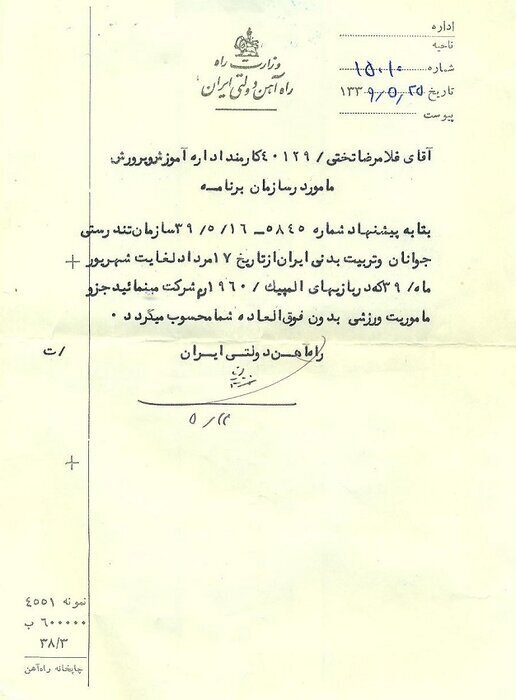 اداره
ناحیه
شماره ۱۵۰۱۰
تاریخ ۱۳۳۹/۵/۲۵
پیوست
وزارت راه
راه آهن دولتی ایران
آقای غلامرضا تختی / ۴۰۱۲۹ کارمند اداره آموزش و پرورش
مامور در سازمان برنامه
بنا به پیشنهاد شماره ۵۸۴۵ - ۳۹/۵/۱۶ سازمان تندرستی
جوانان و تربیت بدنی ایران از تاریخ ۱۷ مرداد لغایت شهریور
ماه / ۳۹ که در بازیهای المپیک / ۱۹۶۰ رم شرکت مینمائید جزو
ماموریت ورزشی بدون فوق العاده شما محسوب میگردد .
راه آهن دولتی ایران
/ت
نمونه ۴۵۵۱
۶۰۰۰۰۰ ب
۳۸/۳
چاپخانه راه‌آهن